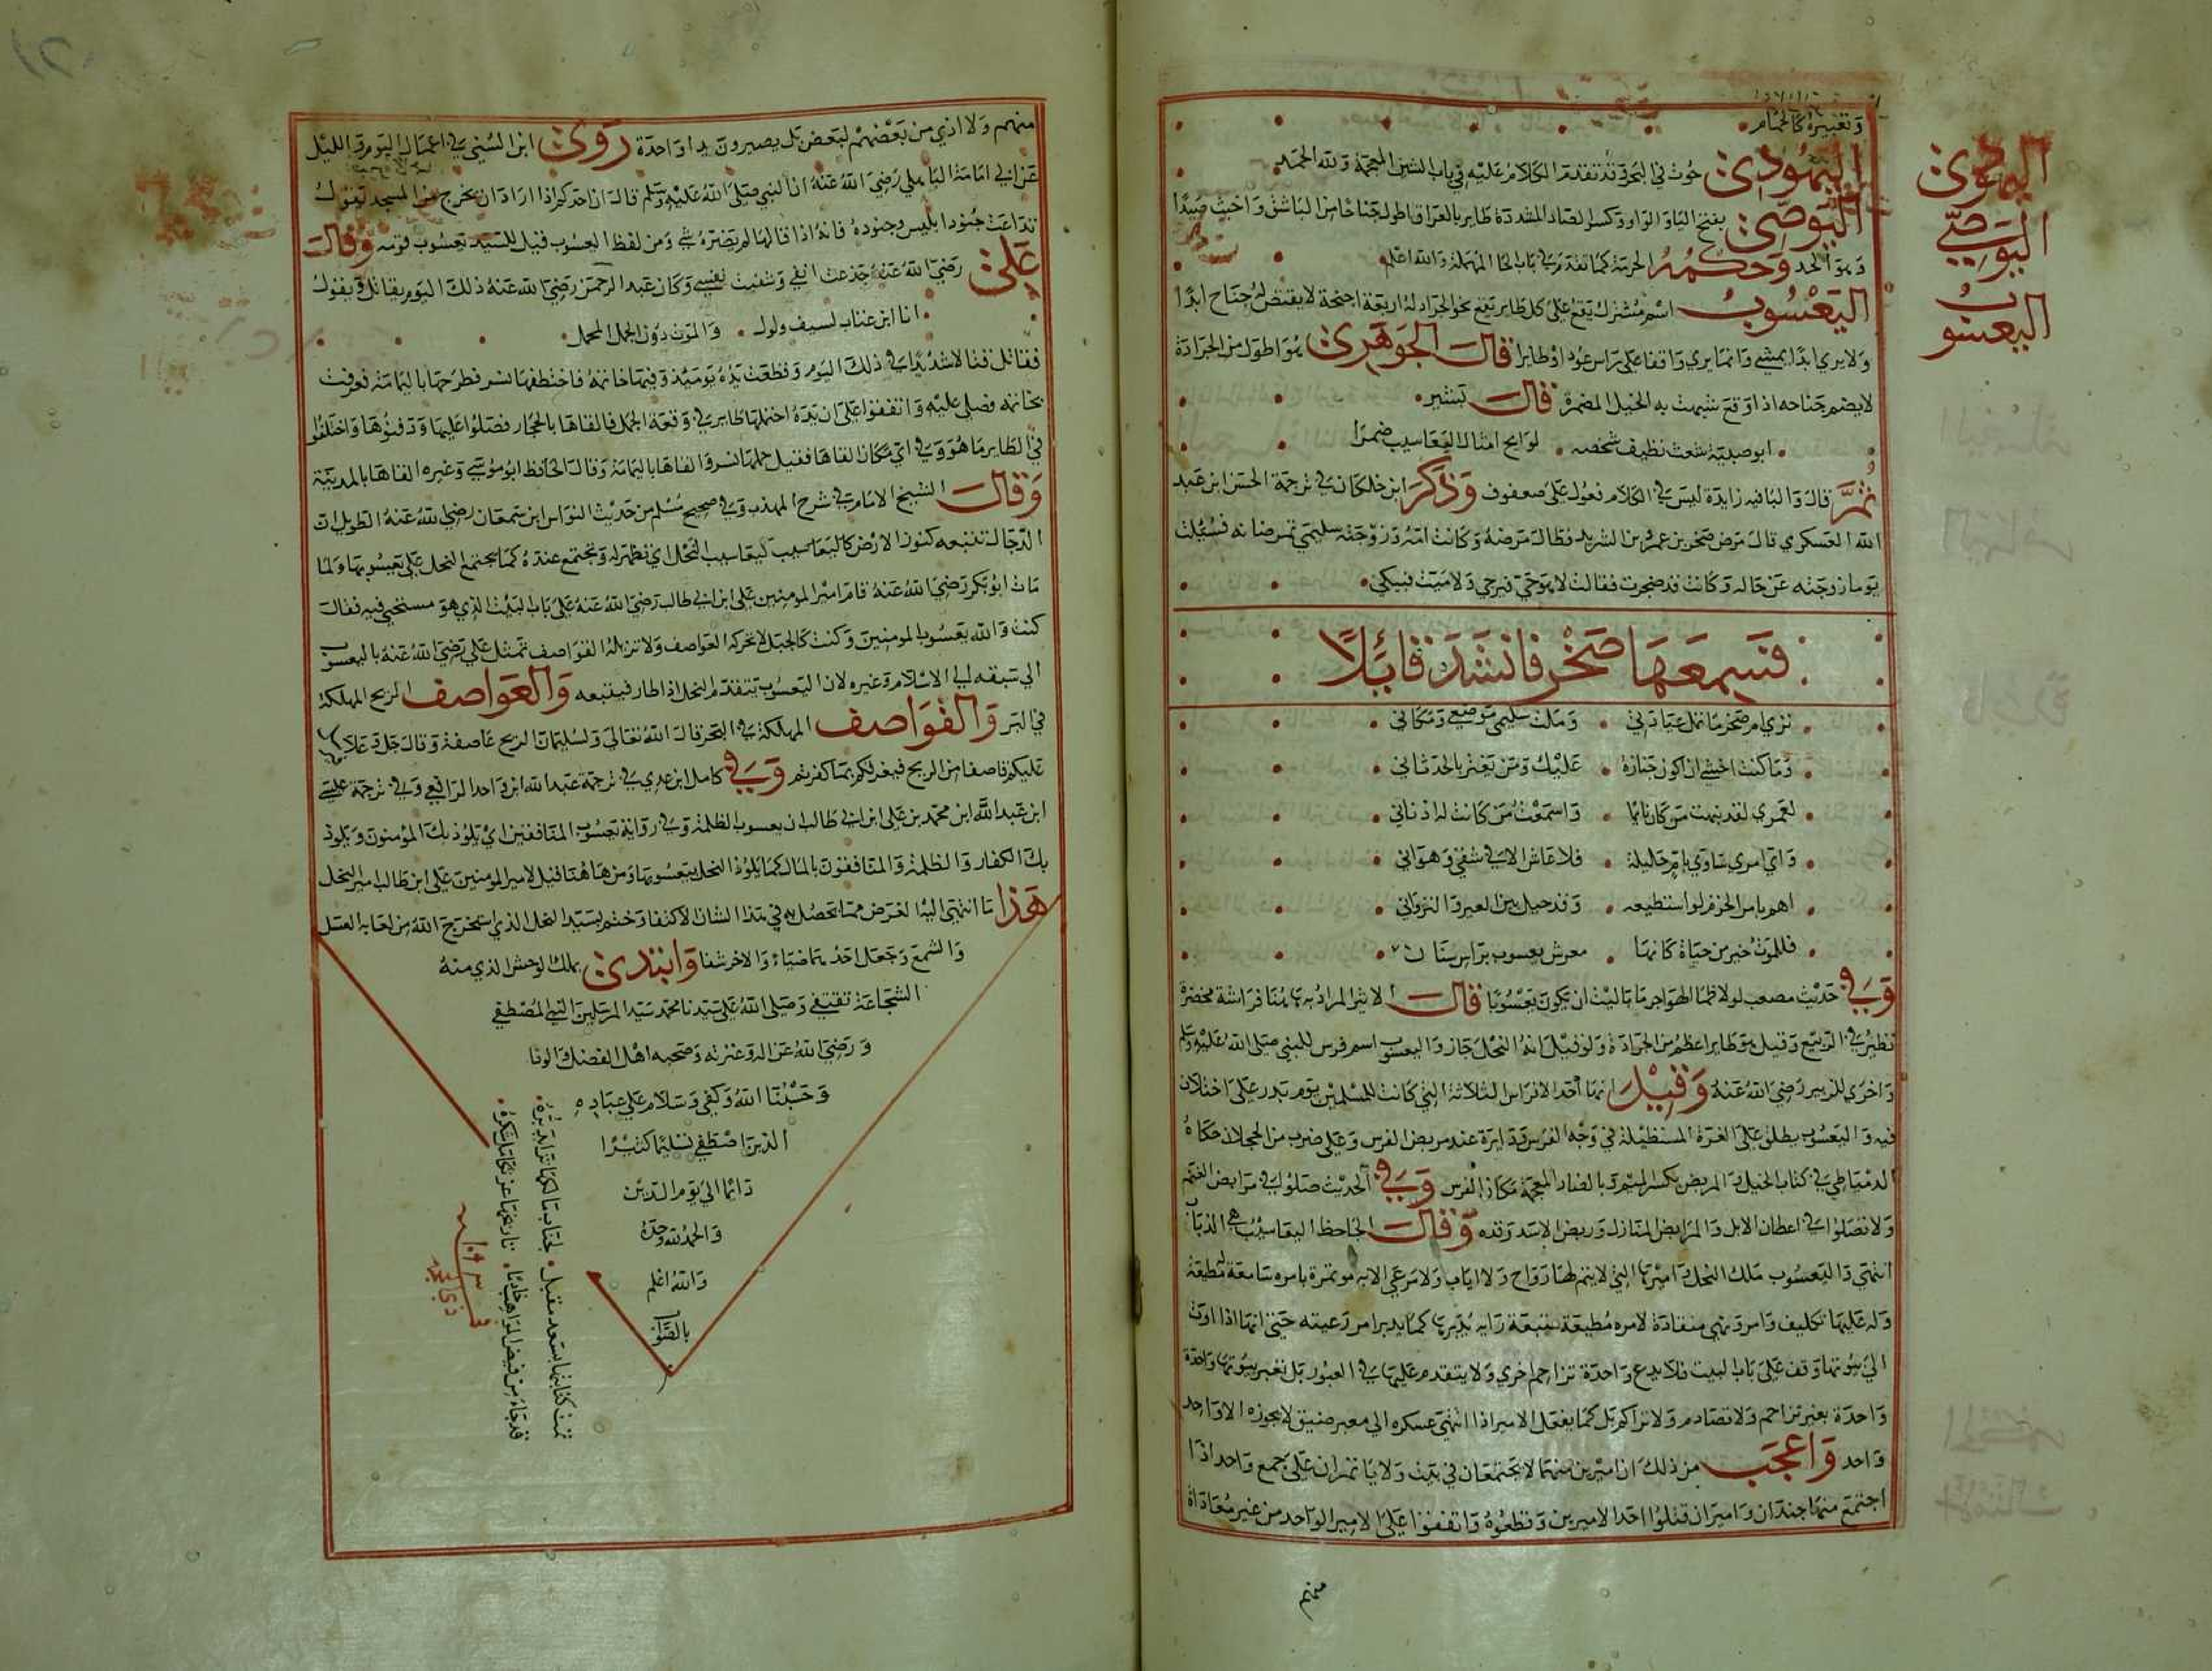 وتعبيره كالحمام
اليهودي حوت في البحر وقد تقدم الكلام عليه في باب الشين المعجمة ولله الحمد
اليوصي بفتح اليا والواو وكسر الصاد المشددة طاير بالعراق اطول جناحا من الباشق واخبث صيدا
وهو الحر وحكمه الحرمة كما تقدم في باب الحا المهملة والله اعلم
اليعسوب اسم مشترك يقع على كل طاير يقع نحو الجراد له اربعة اجنحة لا يقبض له جناح ابدا
ولا يرى ابدا يمشي وانما يرى واقفا على راس عود او طايرا قال الجوهري هو اطول من الجرادة
لا يضم جناحه اذا وقع شبهت به الخيل المضمرة قال بشير
ابو صبية شعث نظيف شخصه لوايح امثال اليعاسيب ضمرا
ثمر قال واليا فيه زايدة ليس في الكلام فعول على صعفوف وذكر ابن خلكان في ترجمة الحسن ابن عبد
الله العسكري قال مرض صخر بن عمرو بن الشريد فطال مرضه وكانت امه وزوجته سليمي تمرضانه فسئلت
يوما زوجته عن حاله وكانت قد ضجرت فقالت لا هو حي فيرجي ولا ميت فيبكي
فسمعها صخر فانشد قائلا
تري ام صخر ما تمل عيادتي وملت سليمي موضعي ومكاني
وما كنت اخشي ان اكون جنازة عليك ومن يغتر بالحدثاني
لعمري لقد نبهت من كان نايما واسمعت من كانت له اذناني
واي امري ساوي بام حليلة فلا عاش الا في شقي وهواني
اهم بامر الحزم لو استطيعه وقد حيل بين العير والنزواني
فللموت خير من حياة كانها معرس يعسوب براس سنان
وفي حديث مصعب لولا ظما الهواجر ما باليت ان يكون يعسوبا قال الاثير المراد به هاهنا فراشة مخضرة
تطير في الربيع وقيل هو طاير اعظم من الجرادة ولو قيل انه النحل جاز واليعسوب اسم فرس للنبي صلى الله عليه وسلم
واخري للزبير رضي الله عنه وقيل انها احد الافراس الثلاثة التي كانت للمسلمين يوم بدر على اختلاف
فيه واليعسوب يطلق على الغرة المستطيلة في وجه الفرس ودايرة عند مربض الفرس وعلى ضرب من الحجلان حكاه
الدمياطي في كتاب الخيل والمربض بكسر الميم وبالضاد المعجمة مكان الفرس وفي الحديث صلوا في مرابض الغنم
ولا تصلوا في اعطان الابل والمرابض المنازل وربض الاسد وقده وقال الجاحظ اليعاسيب هي الذباب
انتهي واليعسوب ملك النحل واميرها التي لا يتم لها رواح ولا اياب ولا مرعي الا به موتمرة بامره سامعة مطيعة
وله عليها تكليف وامر ونهي منقادة لامره مطيعة متبعة رايه يدبرها كما يدبر امر رعيته حتي انها اذا اوت
الي بيوتها وقف على باب البيت فلا يدع واحدة تزاحم اخري ولا يتقدم عليها في العبور بل تعبر بيوتها واحدة
واحدة بغير تزاحم ولا تصادم ولا تراكم بل كما يفعل الامير اذا انتهي عسكره الي معبر ضيق لا يجوزه الا واحد
واحد واعجب من ذلك ان اميرين منهما لا يجتمعان في بيت ولا يامران على جمع واحد اذا
اجتمع منها جندان واميران قتلوا احد الاميرين وقطعوه واتفقوا على الامير الواحد من غير معاداة
منهم
اليهودي
اليوصي
اليعسوب
منهم ولا اذي من بعضهم لبعض بل يصيرون يدا واحدة روي ابن السني في اعمال اليوم والليل
عن ابي امامة الباهلي رضي الله عنه ان النبي صلى الله عليه وسلم قال ان احدكم اذا اراد ان يخرج من المسجد لتقول
تداعت جنود ابليس وجنوده فانه اذا قالها لم يضره شي ومن لفظ اليعسوب قيل للسيد يعسوب قومه وقال
علي رضي الله عنه جدعت انفي وشفيت نفسي وكان عبد الرحمن رضي الله عنه ذلك اليوم يقاتل ويقول
انا ابن عتاب لسيف ولول والموت دون الجمل المجمل
فقاتل قتالا شديدا في ذلك اليوم وقطعت يده يوميذ وفيها خاتمه فاختطفها نسر فطرحها باليمامة فعرفت
بخاتمه فصلي عليه واتفقوا على ان يده احتملها طاير في وقعة الجمل فالقاها بالحجار فصلوا عليها ودفنوها واختلفوا
في الطاير ما هو وفي اي مكان القاها فقيل حملها نسر والقاها باليمامة وقال الحافظ ابو موسي وغيره القاها بالمدينة
وقال الشيخ الامام في شرح المهذب وفي صحيح مسلم من حديث النواس ابن سمعان رضي الله عنه الطويل ان
الدجال تتبعه كنوز الارض كاليعاسيب كيعاسيب النحل اي تظهر له وتجتمع عنده كما يجتمع النحل على يعسوبها ولما
مات ابو بكر رضي الله عنه قام امير المومنين علي ابن ابي طالب رضي الله عنه على باب البيت الذي هو مستحي فيه فقال
كنت والله يعسوبا لمومنين وكنت كالجبل لا تحركه العواصف ولا تزيله القواصف تمثل علي رضي الله عنه باليعسوب
الي سبقه لي الاسلام وغيره لان اليعسوب يتقدم النحل اذا طار فيتبعه والعواصف الريح المهلكة
في البر والقواصف المهلكة في البحر قال الله تعالي ولسليمان الريح عاصفة وقال جل وعلا
عليكم قاصفا من الريح فيغرقكم بما كفرتم وفي كامل ابن عدي في ترجمة عبد الله ابن واحد الرافعي وفي ترجمة عيسي
ابن عبد الله ابن محمد بن علي ابن ابي طالب ان يعسوب الظلمة وفي رواية يعسوب المنافقين اي يلوذ بك المؤمنون ويلوذ
بك الكفار والظلمة والمنافقون بالمال كما يلوذ النحل بيعسوبها ومن هاهنا قيل لامير المومنين علي ابن طالب امير النحل
هذا ما انتهي اليه الغرض مما تحصل به في هذا الشان الاكتفا وختم بسيد النحل الذي استخرج الله من لعابه العسل
والشمع وجعل احدهما ضياء والاخر شفا وابتدي بملك الوحش الذي منه
الشجاعة تقتفي وصلى الله على سيدنا محمد سيد المرسلين النبي المصطفي
ورضي الله عن اله وعترته وصحبه اهل الفضل والوفا
وحسبنا الله وكفي وسلام على عباده
الذين اصطفي تسليما كثيرا
دائما الي يوم الدين
والحمد لله وحده
والله اعلم
بالصواب
تمت كتابتها بسعد مقبل
فدجاء من فيض المواهب